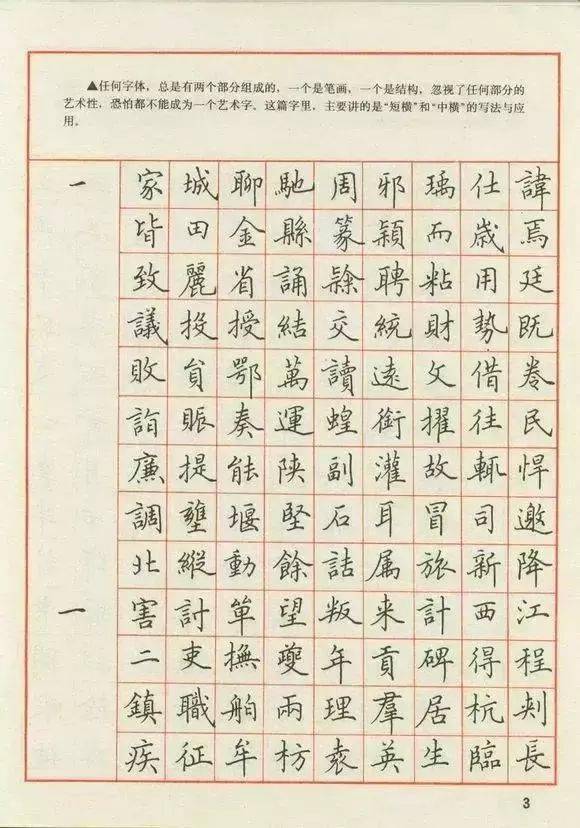 ▲任何字体，总是有两个部分组成的，一个是笔画，一个是结构，忽视了任何部分的
艺术性，恐怕都不能成为一个艺术字。这篇字里，主要讲的是“短横”和“中横”的写法与应
用。
一 家 城 聊 馳 周 邪 瑀 仕 諱
皆 田 金 縣 篆 穎 而 歳 焉
致 麗 省 誦 聘 粘 用 廷
議 投 授 結 交 統 財 勢 既
敗 貟 鄂 萬 讀 遠 文 借 卷
詣 賑 奏 運 蝗 銜 擢 往 民
廉 提 能 陝 副 灌 故 輒 悍
調 壅 堰 堅 石 耳 冒 司 邀
北 縱 動 餘 詰 属 旅 新 降
一 害 討 單 望 叛 来 計 西 江
二 吏 撫 夔 年 貢 碑 得 程
鎮 職 舶 兩 理 羣 居 杭 刾
疾 征 牟 枋 袁 英 生 臨 長
3